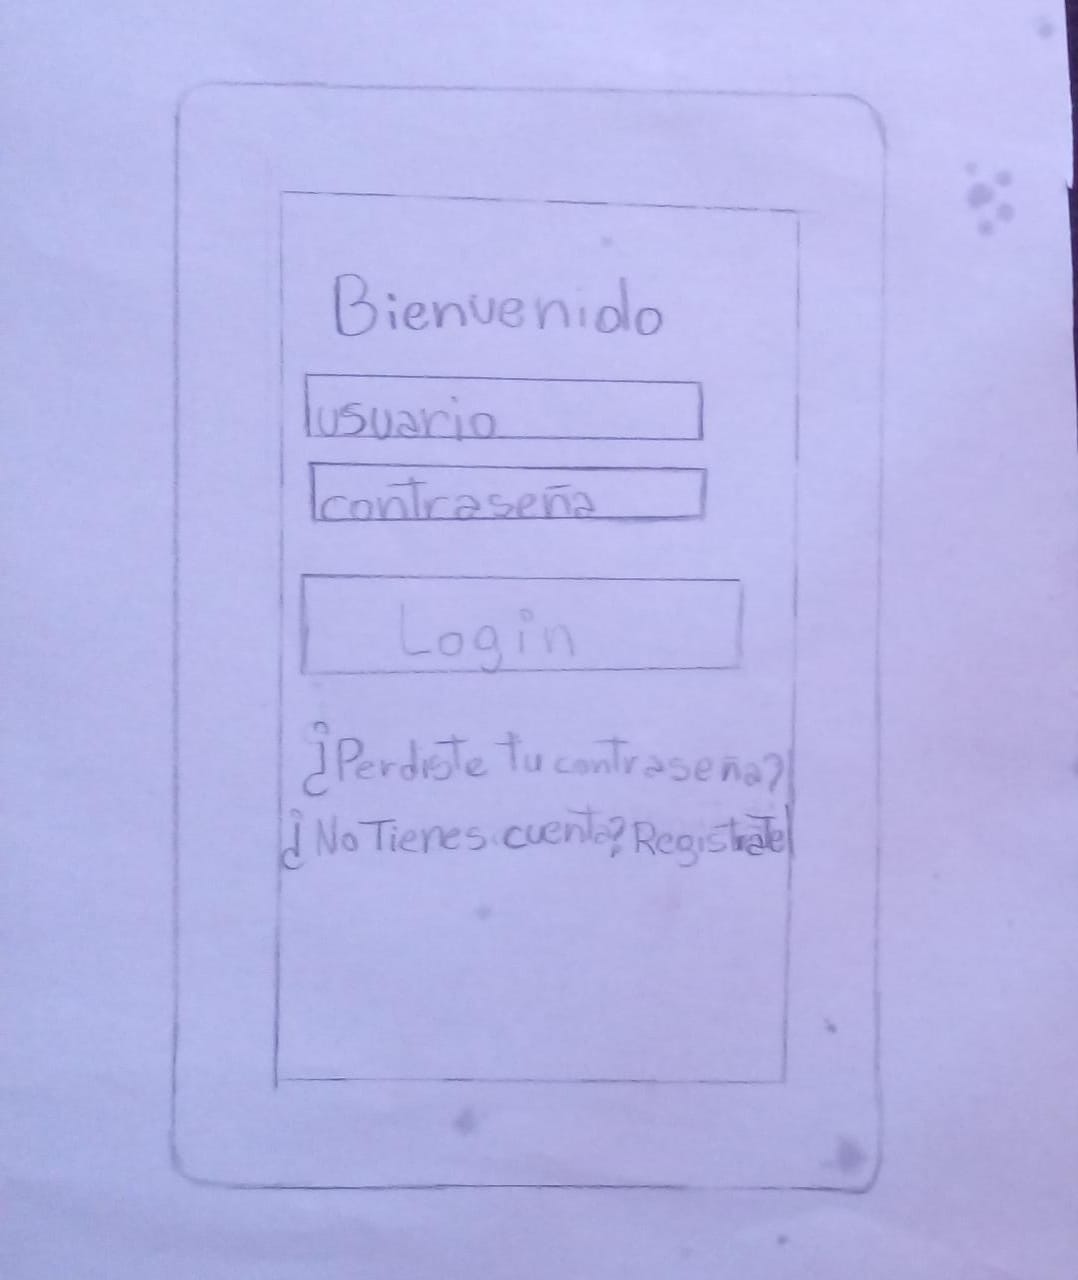 Bienvenido
usuario
contraseña
Login
¿Perdiste tu contraseña?
¿No Tienes cuenta? Registrate